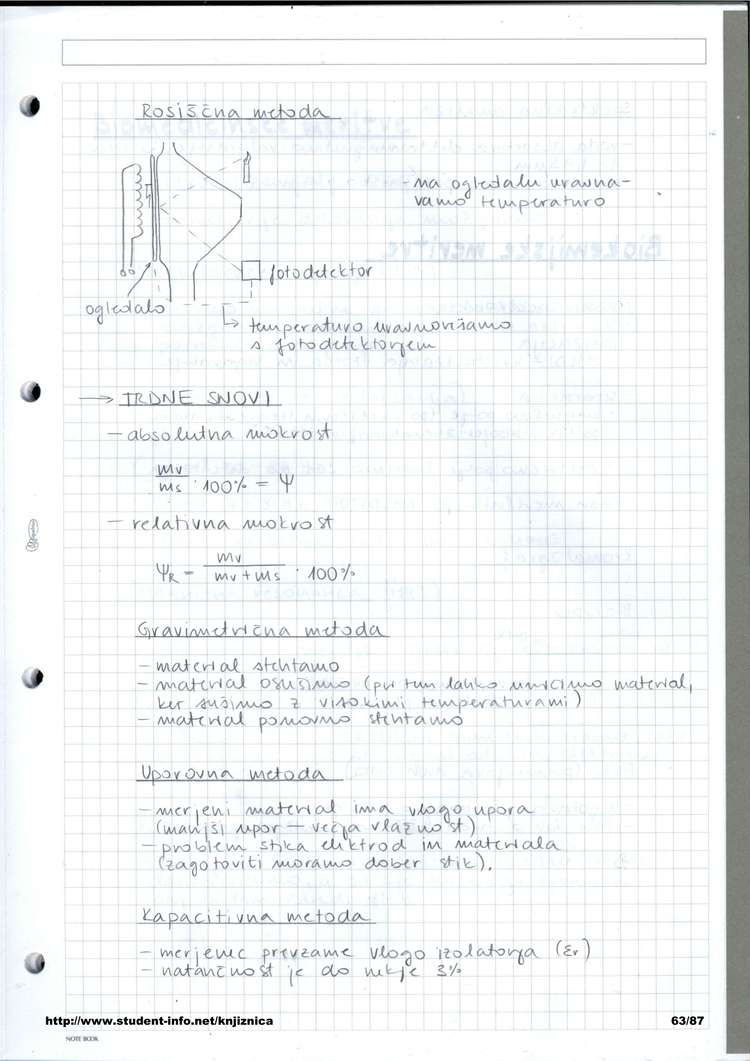 Rosiščna metoda
- na ogledalu uravna-
vamo temperaturo
fotodetektor
ogledalo
↳ temperaturo uravnovišamo
s fotodetektorjem
→ TRDNE SNOVI
- absolutna mokrost
mv/ms · 100% = Ψ
- relativna mokrost
ΨR = mv/(mv + ms) · 100%
Gravimetrična metoda
- material stehtamo
- material osušimo (pri tem lahko uničimo material,
ker sušimo z visokimi temperaturami)
- material ponovno stehtamo
Uporovna metoda
- merjeni material ima vlogo upora
(manjši upor – večja vlažnost)
- problem stika elektrod in materiala
(zagotoviti moramo dober stik).
Kapacitivna metoda
- merjenec prevzame vlogo izolatorja (εr)
- natančnost je do nekje 3%
http://www.student-info.net/knjiznica 63/87
NOTE BOOK